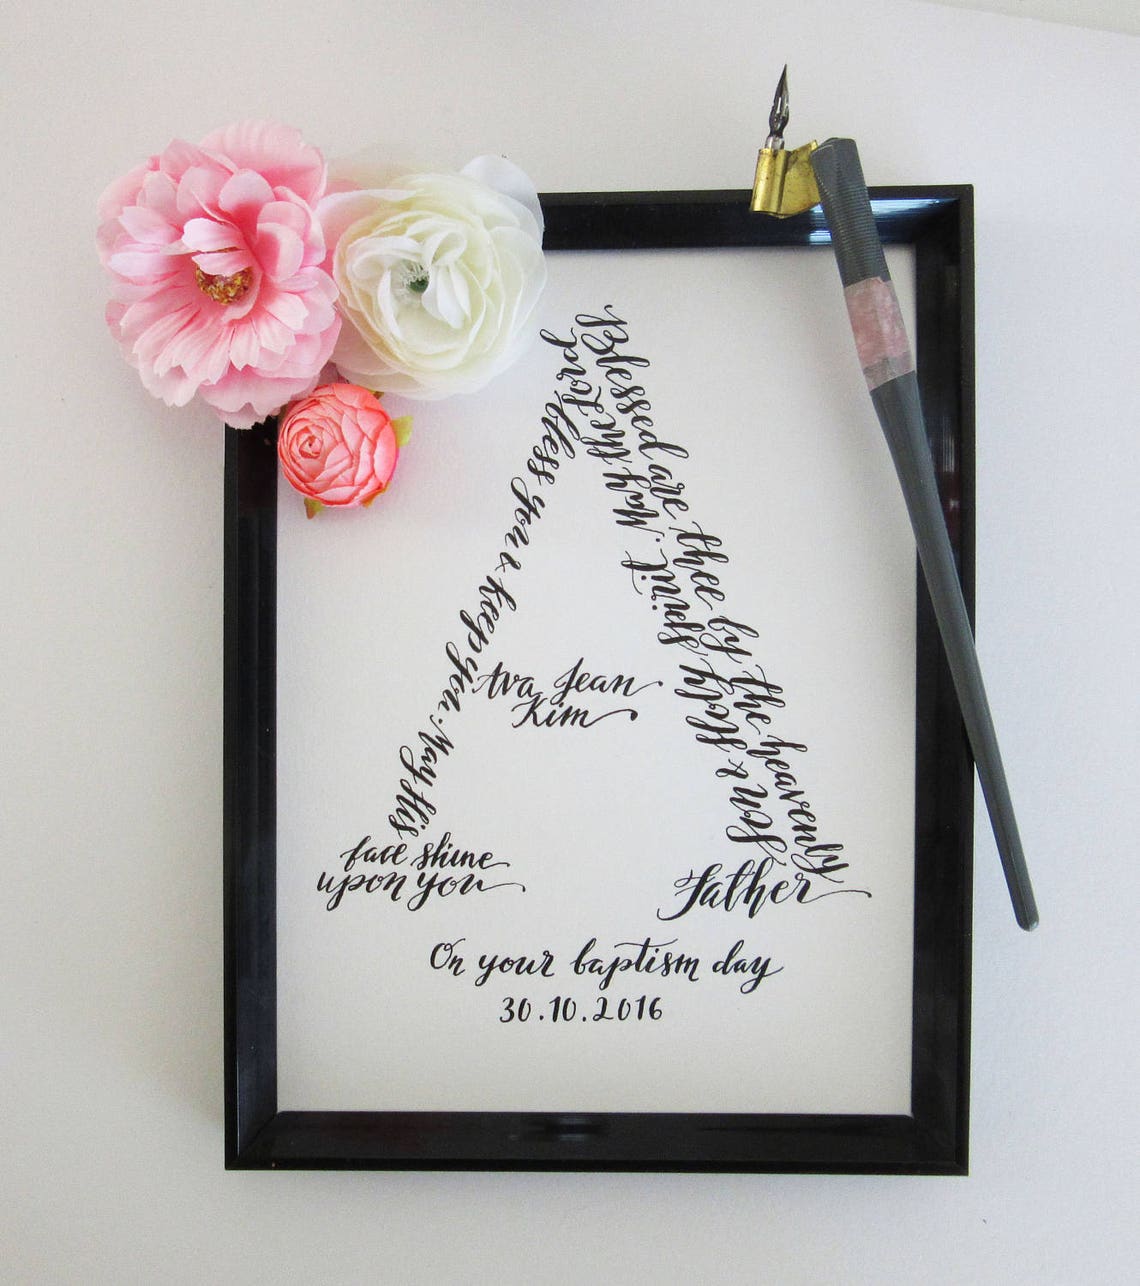 Blessed are thee by the heavenly
Father
Son & Holy spirit. May the Lord
bless you & keep you. May His
face shine
upon you
Ava Jean
Kim
On your baptism day
30.10.2016